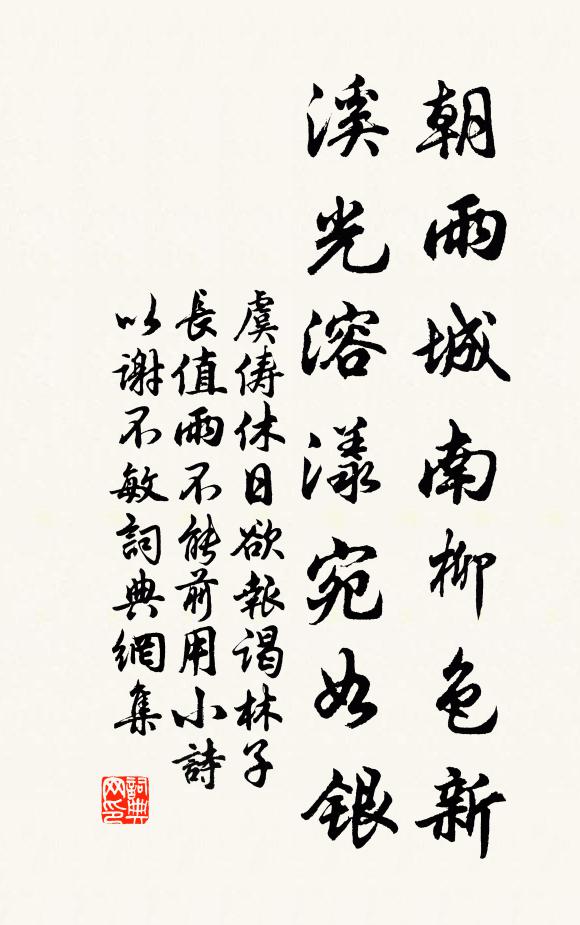 朝雨城南柳色新
溪光溶漾宛如銀
虞儔休日欲報謁林子
長值雨不能前用小詩
以谢不敏詞典網集
詞典网印